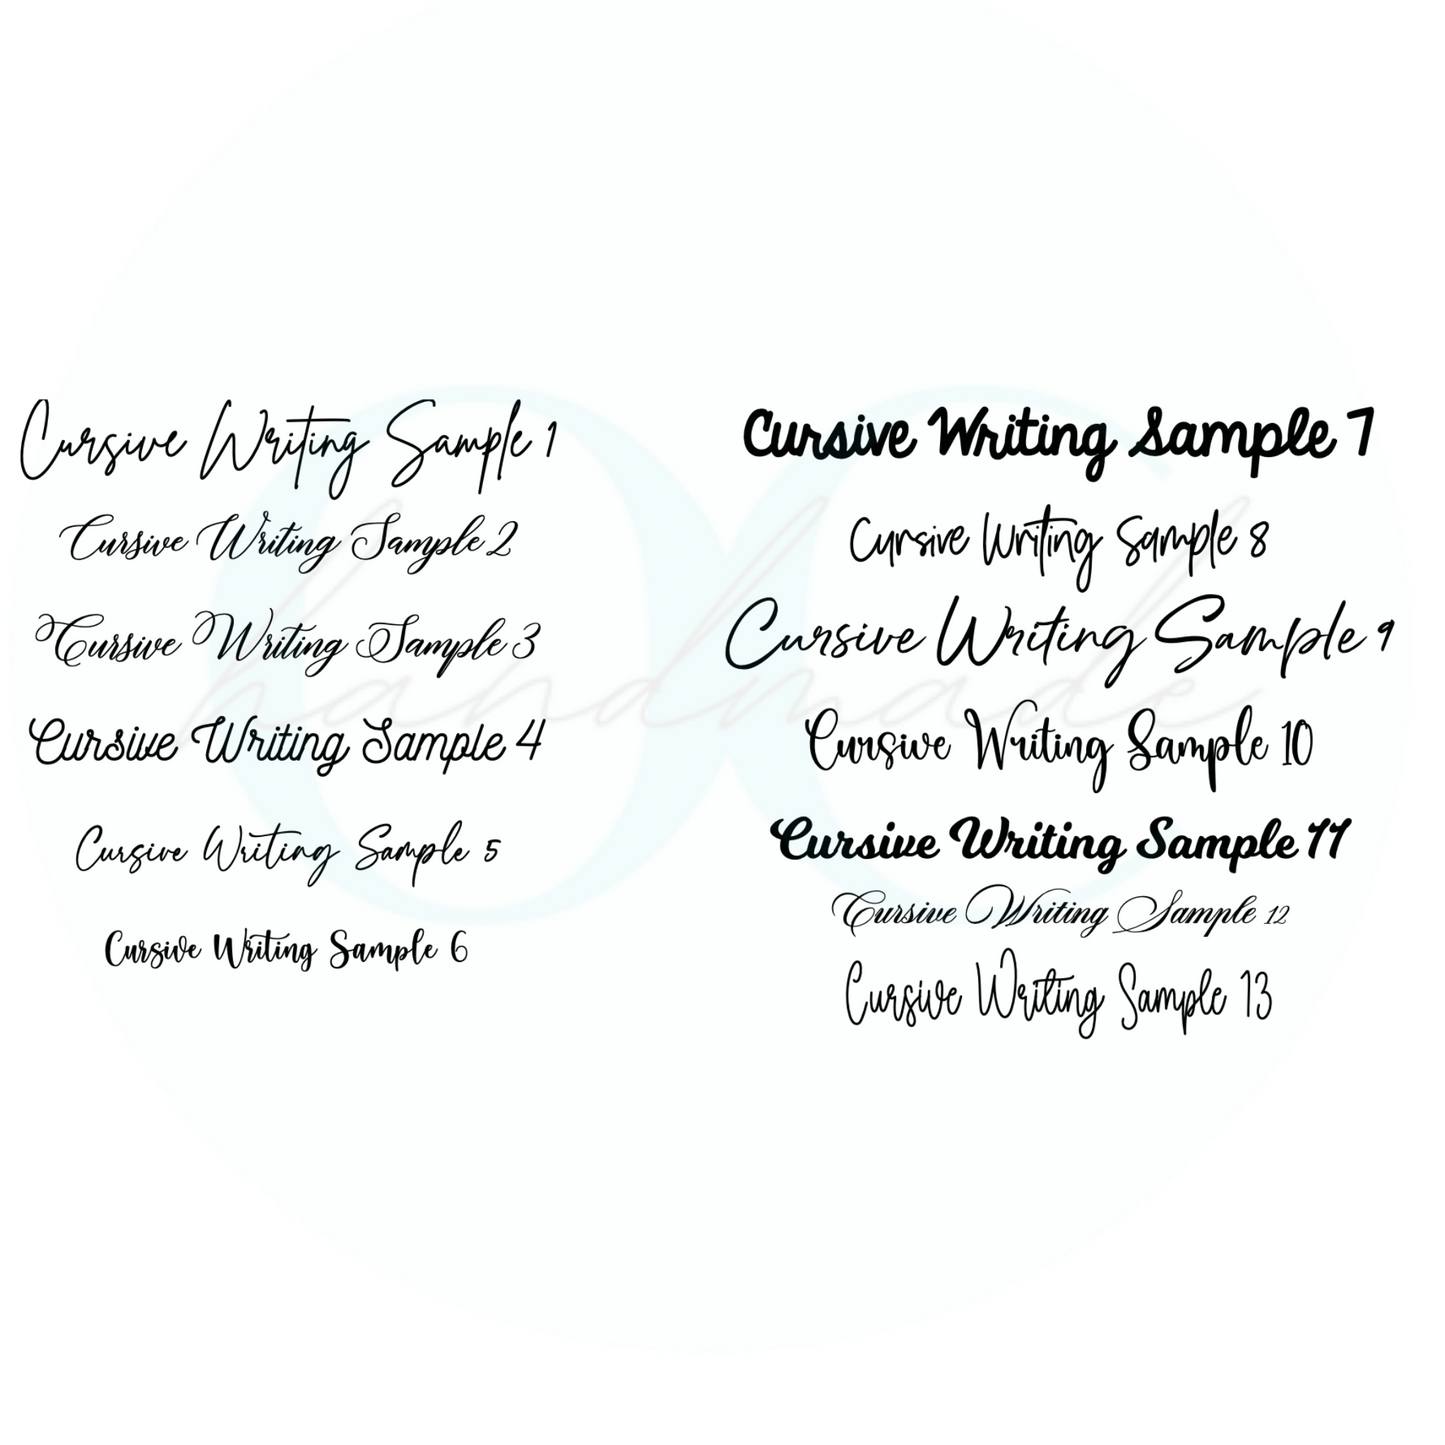 Cursive Writing Sample 1
Cursive Writing Sample 2
Cursive Writing Sample 3
Cursive Writing Sample 4
Cursive Writing Sample 5
Cursive Writing Sample 6
Cursive Writing Sample 7
Cursive Writing Sample 8
Cursive Writing Sample 9
Cursive Writing Sample 10
Cursive Writing Sample 11
Cursive Writing Sample 12
Cursive Writing Sample 13
OC
handmade